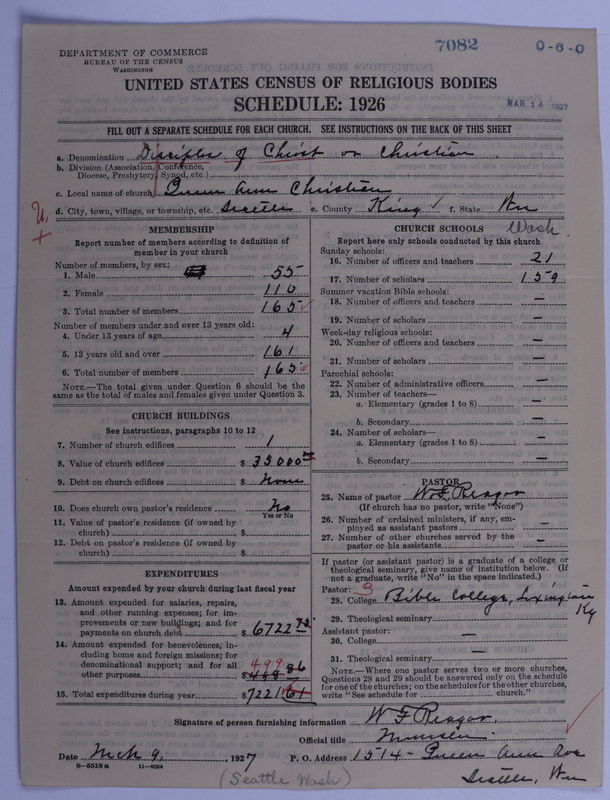 7082 0-6-0
DEPARTMENT OF COMMERCE
BUREAU OF THE CENSUS
WASHINGTON
UNITED STATES CENSUS OF RELIGIOUS BODIES
SCHEDULE: 1926
MAR 14 1927
FILL OUT A SEPARATE SCHEDULE FOR EACH CHURCH. SEE INSTRUCTIONS ON THE BACK OF THIS SHEET
a. Denomination Disciples of Christ or Christian
b. Division (Association, Conference,
Diocese, Presbytery, Synod, etc.)
c. Local name of church Queen Ann Christian
d. City, town, village, or township, etc. Seattle e. County King f. State Wn
Wash.
MEMBERSHIP
Report number of members according to definition of
member in your church
Number of members, by sex:
1. Male 55
2. Female 110
3. Total number of members 165
Number of members under and over 13 years old:
4. Under 13 years of age 4
5. 13 years old and over 161
6. Total number of members 165
NOTE.—The total given under Question 6 should be the
same as the total of males and females given under Question 3.
CHURCH BUILDINGS
See instructions, paragraphs 10 to 12
7. Number of church edifices 1
8. Value of church edifices $ 35000 00
9. Debt on church edifices $ none
10. Does church own pastor's residence No
Yes or No
11. Value of pastor's residence (if owned by
church) $
12. Debt on pastor's residence (if owned by
church) $
EXPENDITURES
Amount expended by your church during last fiscal year
13. Amount expended for salaries, repairs,
and other running expenses; for im-
provements or new buildings; and for
payments on church debt $ 6722 75
14. Amount expended for benevolences, in-
cluding home and foreign missions; for
denominational support; and for all 499
other purposes $ 498 86
15. Total expenditures during year $ 7221 61
CHURCH SCHOOLS
Report here only schools conducted by this church
Sunday schools:
16. Number of officers and teachers 21
17. Number of scholars 159
Summer vacation Bible schools:
18. Number of officers and teachers —
19. Number of scholars —
Week-day religious schools:
20. Number of officers and teachers —
21. Number of scholars —
Parochial schools:
22. Number of administrative officers —
23. Number of teachers—
a. Elementary (grades 1 to 8) —
b. Secondary —
24. Number of scholars—
a. Elementary (grades 1 to 8) —
b. Secondary —
PASTOR
25. Name of pastor W. F. Reagor
(If church has no pastor, write "None")
26. Number of ordained ministers, if any, em-
ployed as assistant pastors —
27. Number of other churches served by the
pastor or his assistants —
If pastor (or assistant pastor) is a graduate of a college or
theological seminary, give name of institution below. (If
not a graduate, write "No" in the space indicated.)
Pastor: 3
28. College Bible College, Lexington
Ky
29. Theological seminary
Assistant pastor: —
30. College
31. Theological seminary —
NOTE.—Where one pastor serves two or more churches,
Questions 28 and 29 should be answered only on the schedule
for one of the churches; on the schedules for the other churches,
write "See schedule for church."
Signature of person furnishing information W F Reagor.
Official title Minister
Date Mch 9, 1927 P. O. Address 1514- Queen Ann Ave
8—5518 a 11—9024
(Seattle Wash) Seattle, Wn